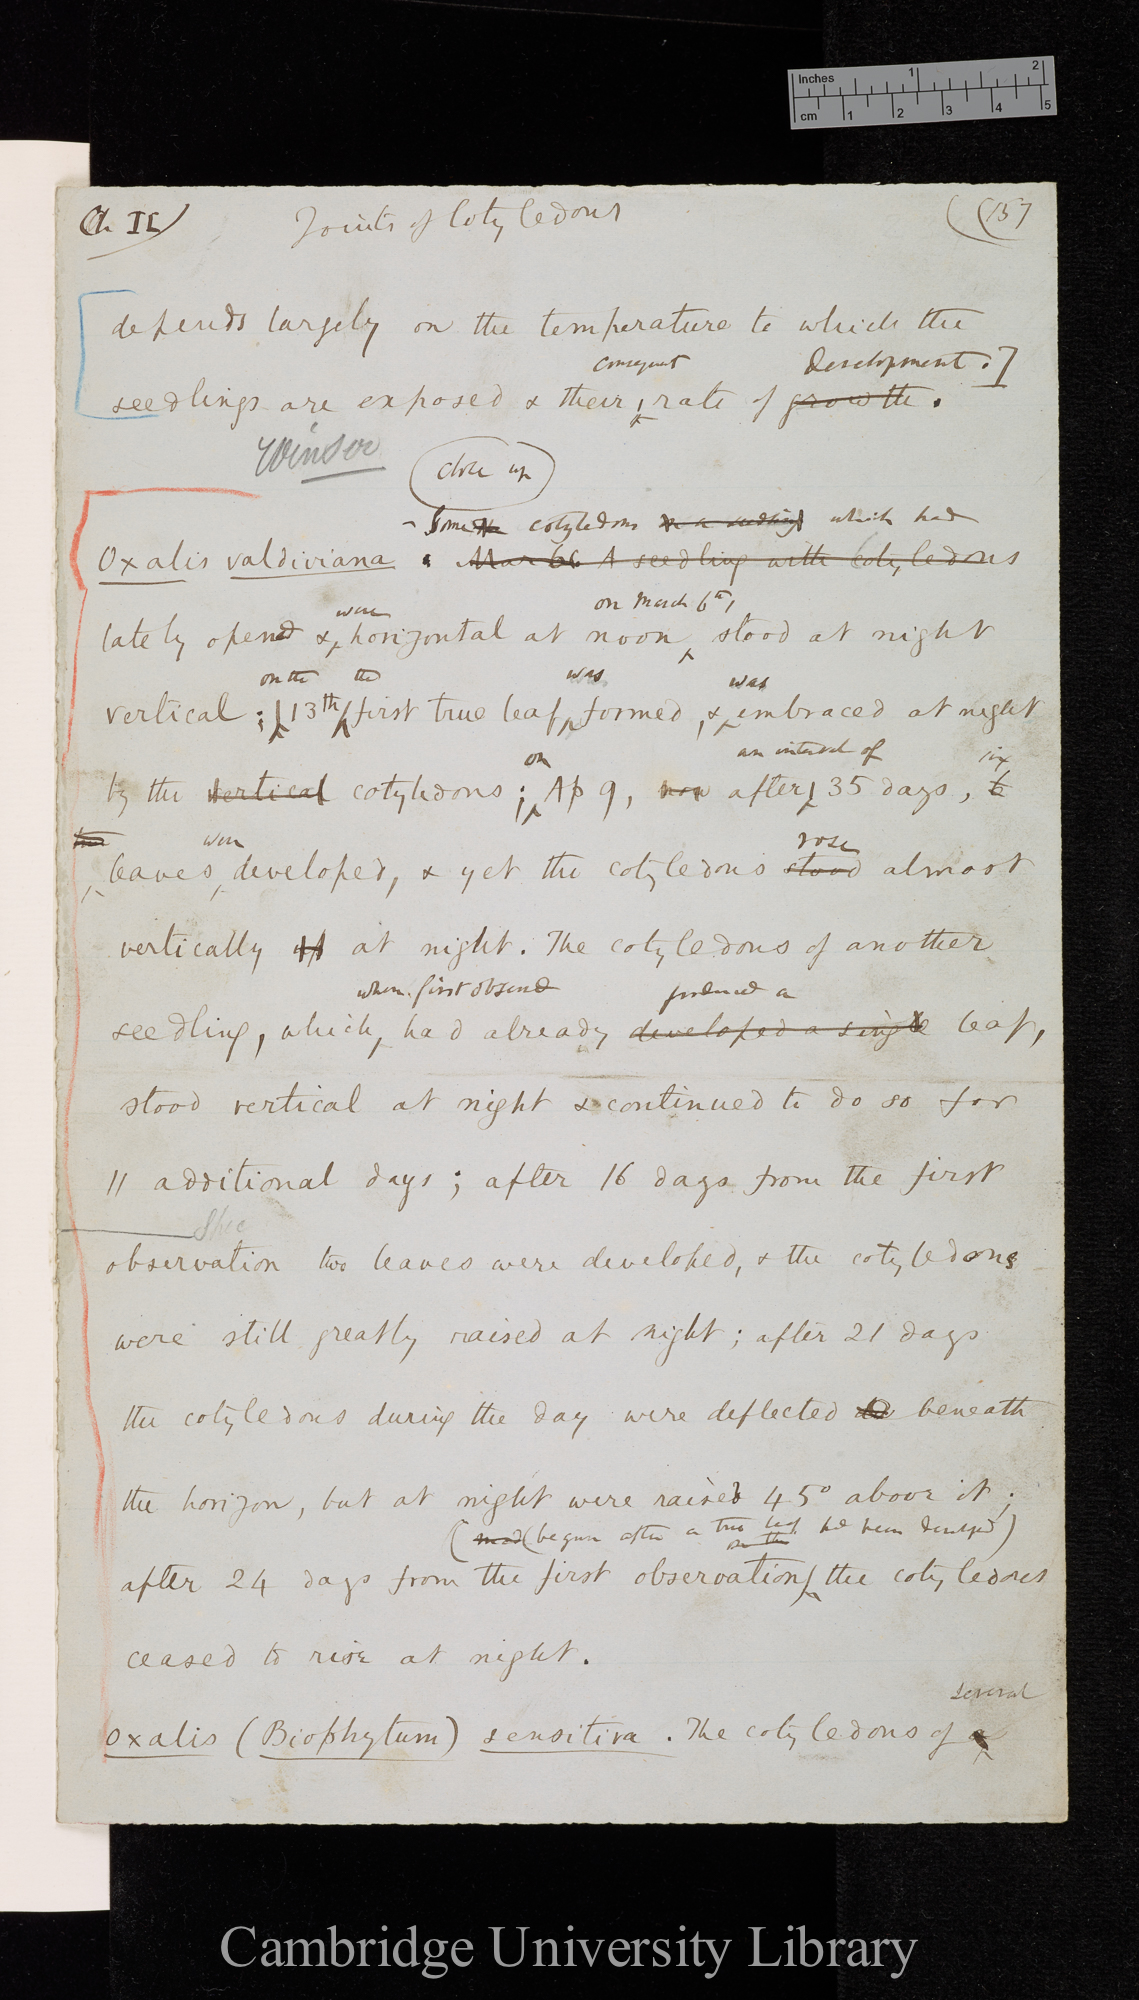 Inches 1 2
cm 1 2 3 4 5
Ch II Joints of Cotyledons (157
depends largely on the temperature to which the
consequent development.]
seedlings are exposed & their rate of growth.
Winsor
close up
Some cotyledons on a seedling which had
Oxalis valdiviana. Mar 6 A seedling with cotyledons
were on March 6th,
lately opened & horizontal at noon, stood at night
on the the was was
vertical; 13th first true leaf formed, & embraced at night
on an interval of six
by the vertical cotyledons; Ap 9, now after 35 days, 6
were rose
leaves developed, & yet the cotyledons stood almost
vertically at night. The cotyledons of another
when first observed produced a
seedling, which, had already developed a single leaf,
stood vertical at night & continued to do so for
11 additional days; after 16 days from the first
observation two leaves were developed, & the cotyledons
were still greatly raised at night; after 21 days
the cotyledons during the day were deflected beneath
the horizon, but at night were raised 45° above it;
(begun after a true leaf had been developed)
after 24 days from the first observation, the cotyledons
ceased to rise at night.
several
Oxalis (Biophytum) sensitiva. The cotyledons of a
Cambridge University Library